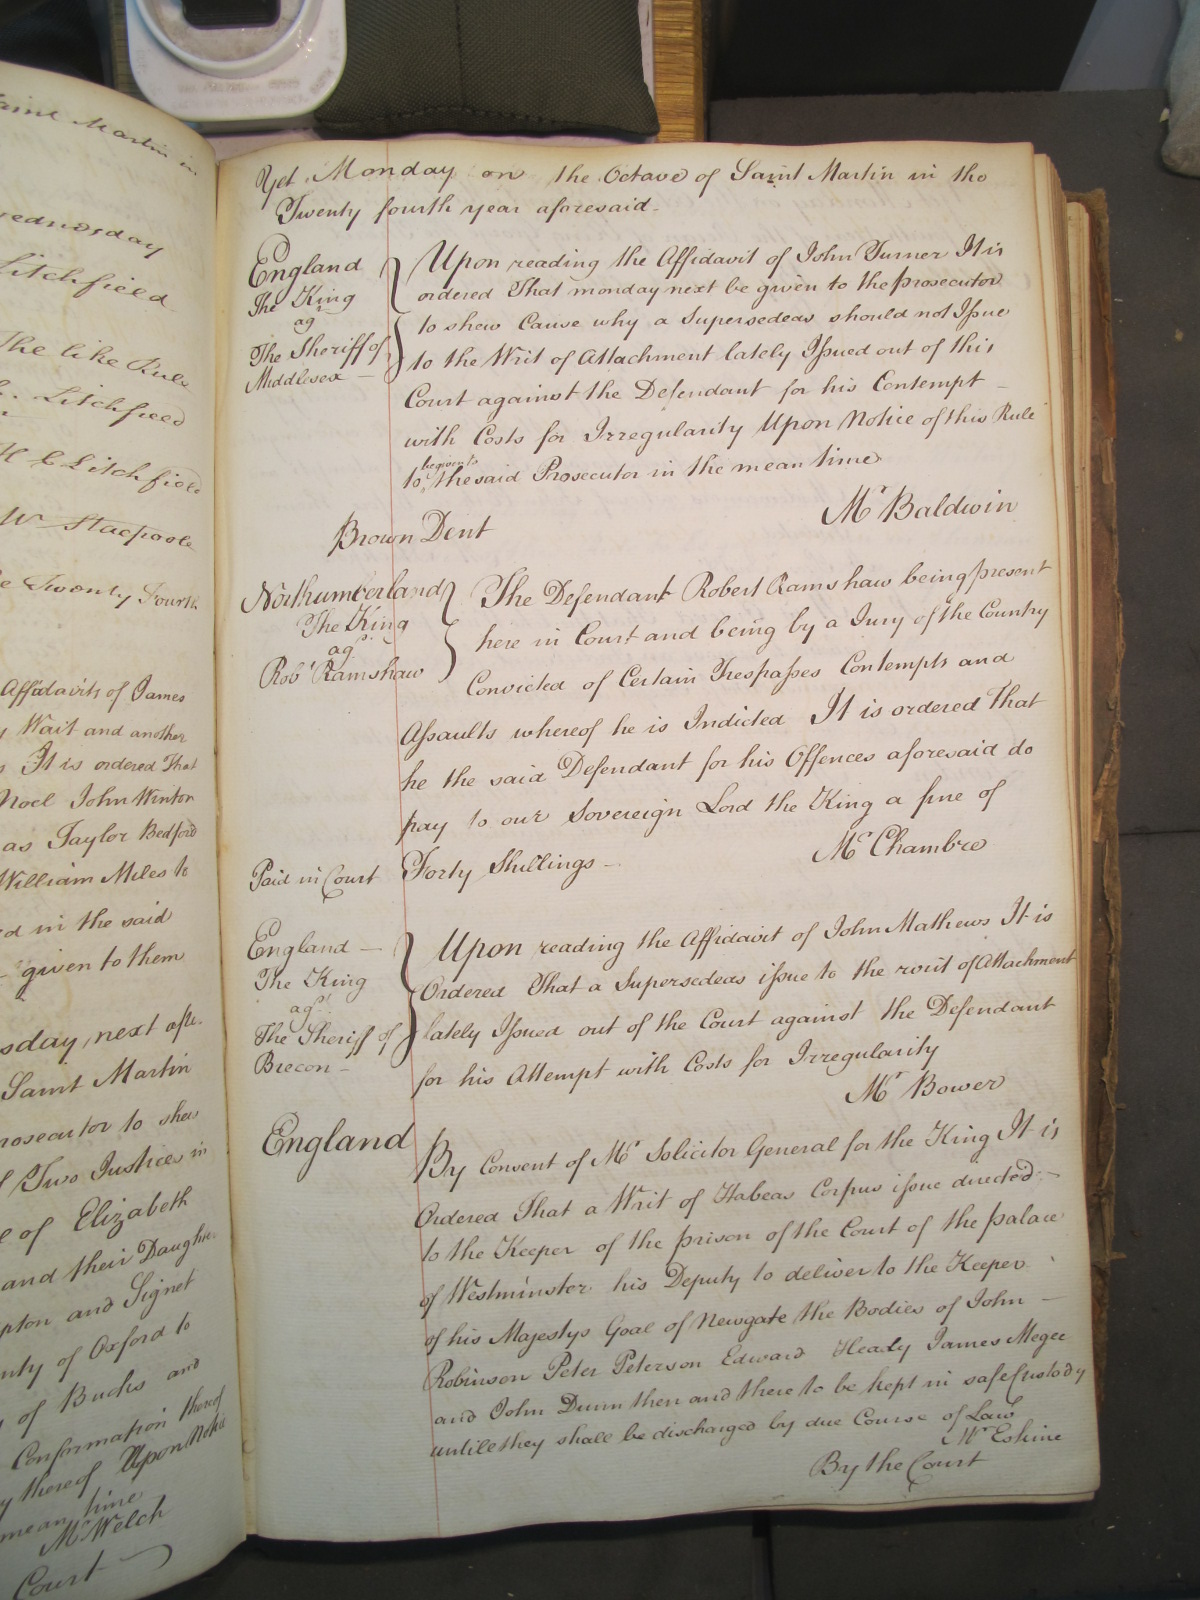 Saint Martin in
Wednesday
Litchfield
The like Rule
Litchfield
H C Litchfield
Wm Stacpoole
Twenty Fourth
Affidavits of James
Wait and another
It is ordered That
Noel John Winton
as Taylor Bedford
William Miles to
in the said
given to them
next afte
Saint Martin
prosecutor to shew
Two Justices in
of Elizabeth
and their Daughter
and Signet
County of Oxford to
of Bucks and
Confirmation thereof
thereof Upon Notice
mean time
Mr Welch
Court
Yet Monday on the Octave of Saint Martin in the
Twenty fourth year aforesaid-
England
The King
agt
The Sheriff of
Middlesex -
Upon reading the Affidavit of John Turner It is
ordered That monday next be given to the prosecutor
to shew Cause why a Supersedeas should not Issue
to the Writ of Attachment lately Issued out of this
Court against the Defendant for his Contempt -
with Costs for Irregularity Upon Notice of this Rule
to be given to the said Prosecutor in the mean time
Mr Baldwin
Brown Dent
Northumberland
The King
agt
Robt Ramshaw
The Defendant Robert Ramshaw being present
here in Court and being by a Jury of the Country
Convicted of Certain Trespasses Contempts and
Assaults whereof he is Indicted It is ordered That
he the said Defendant for his Offences aforesaid do
pay to our Sovereign Lord the King a fine of
Forty Shillings -
Mr Chambre
Paid in Court
England -
The King
agt
The Sheriff of
Brecon -
Upon reading the Affidavit of John Mathews It is
Ordered That a Supersedeas issue to the writ of Attachment
lately Issued out of the Court against the Defendant
for his Attempt with Costs for Irregularity
Mr Bower
England
By Consent of Mr Solicitor General for the King It is
Ordered That a Writ of Habeas Corpus issue directed -
to the Keeper of the prison of the Court of the palace
of Westminster his Deputy to deliver to the Keeper
of his Majestys Goal of Newgate the Bodies of John -
Robinson Peter Peterson Edward Heady James Megee
and John Dunn then and there to be kept in safe Custody
untill they shall be discharged by due Course of Law
Mr Erskine
By the Court